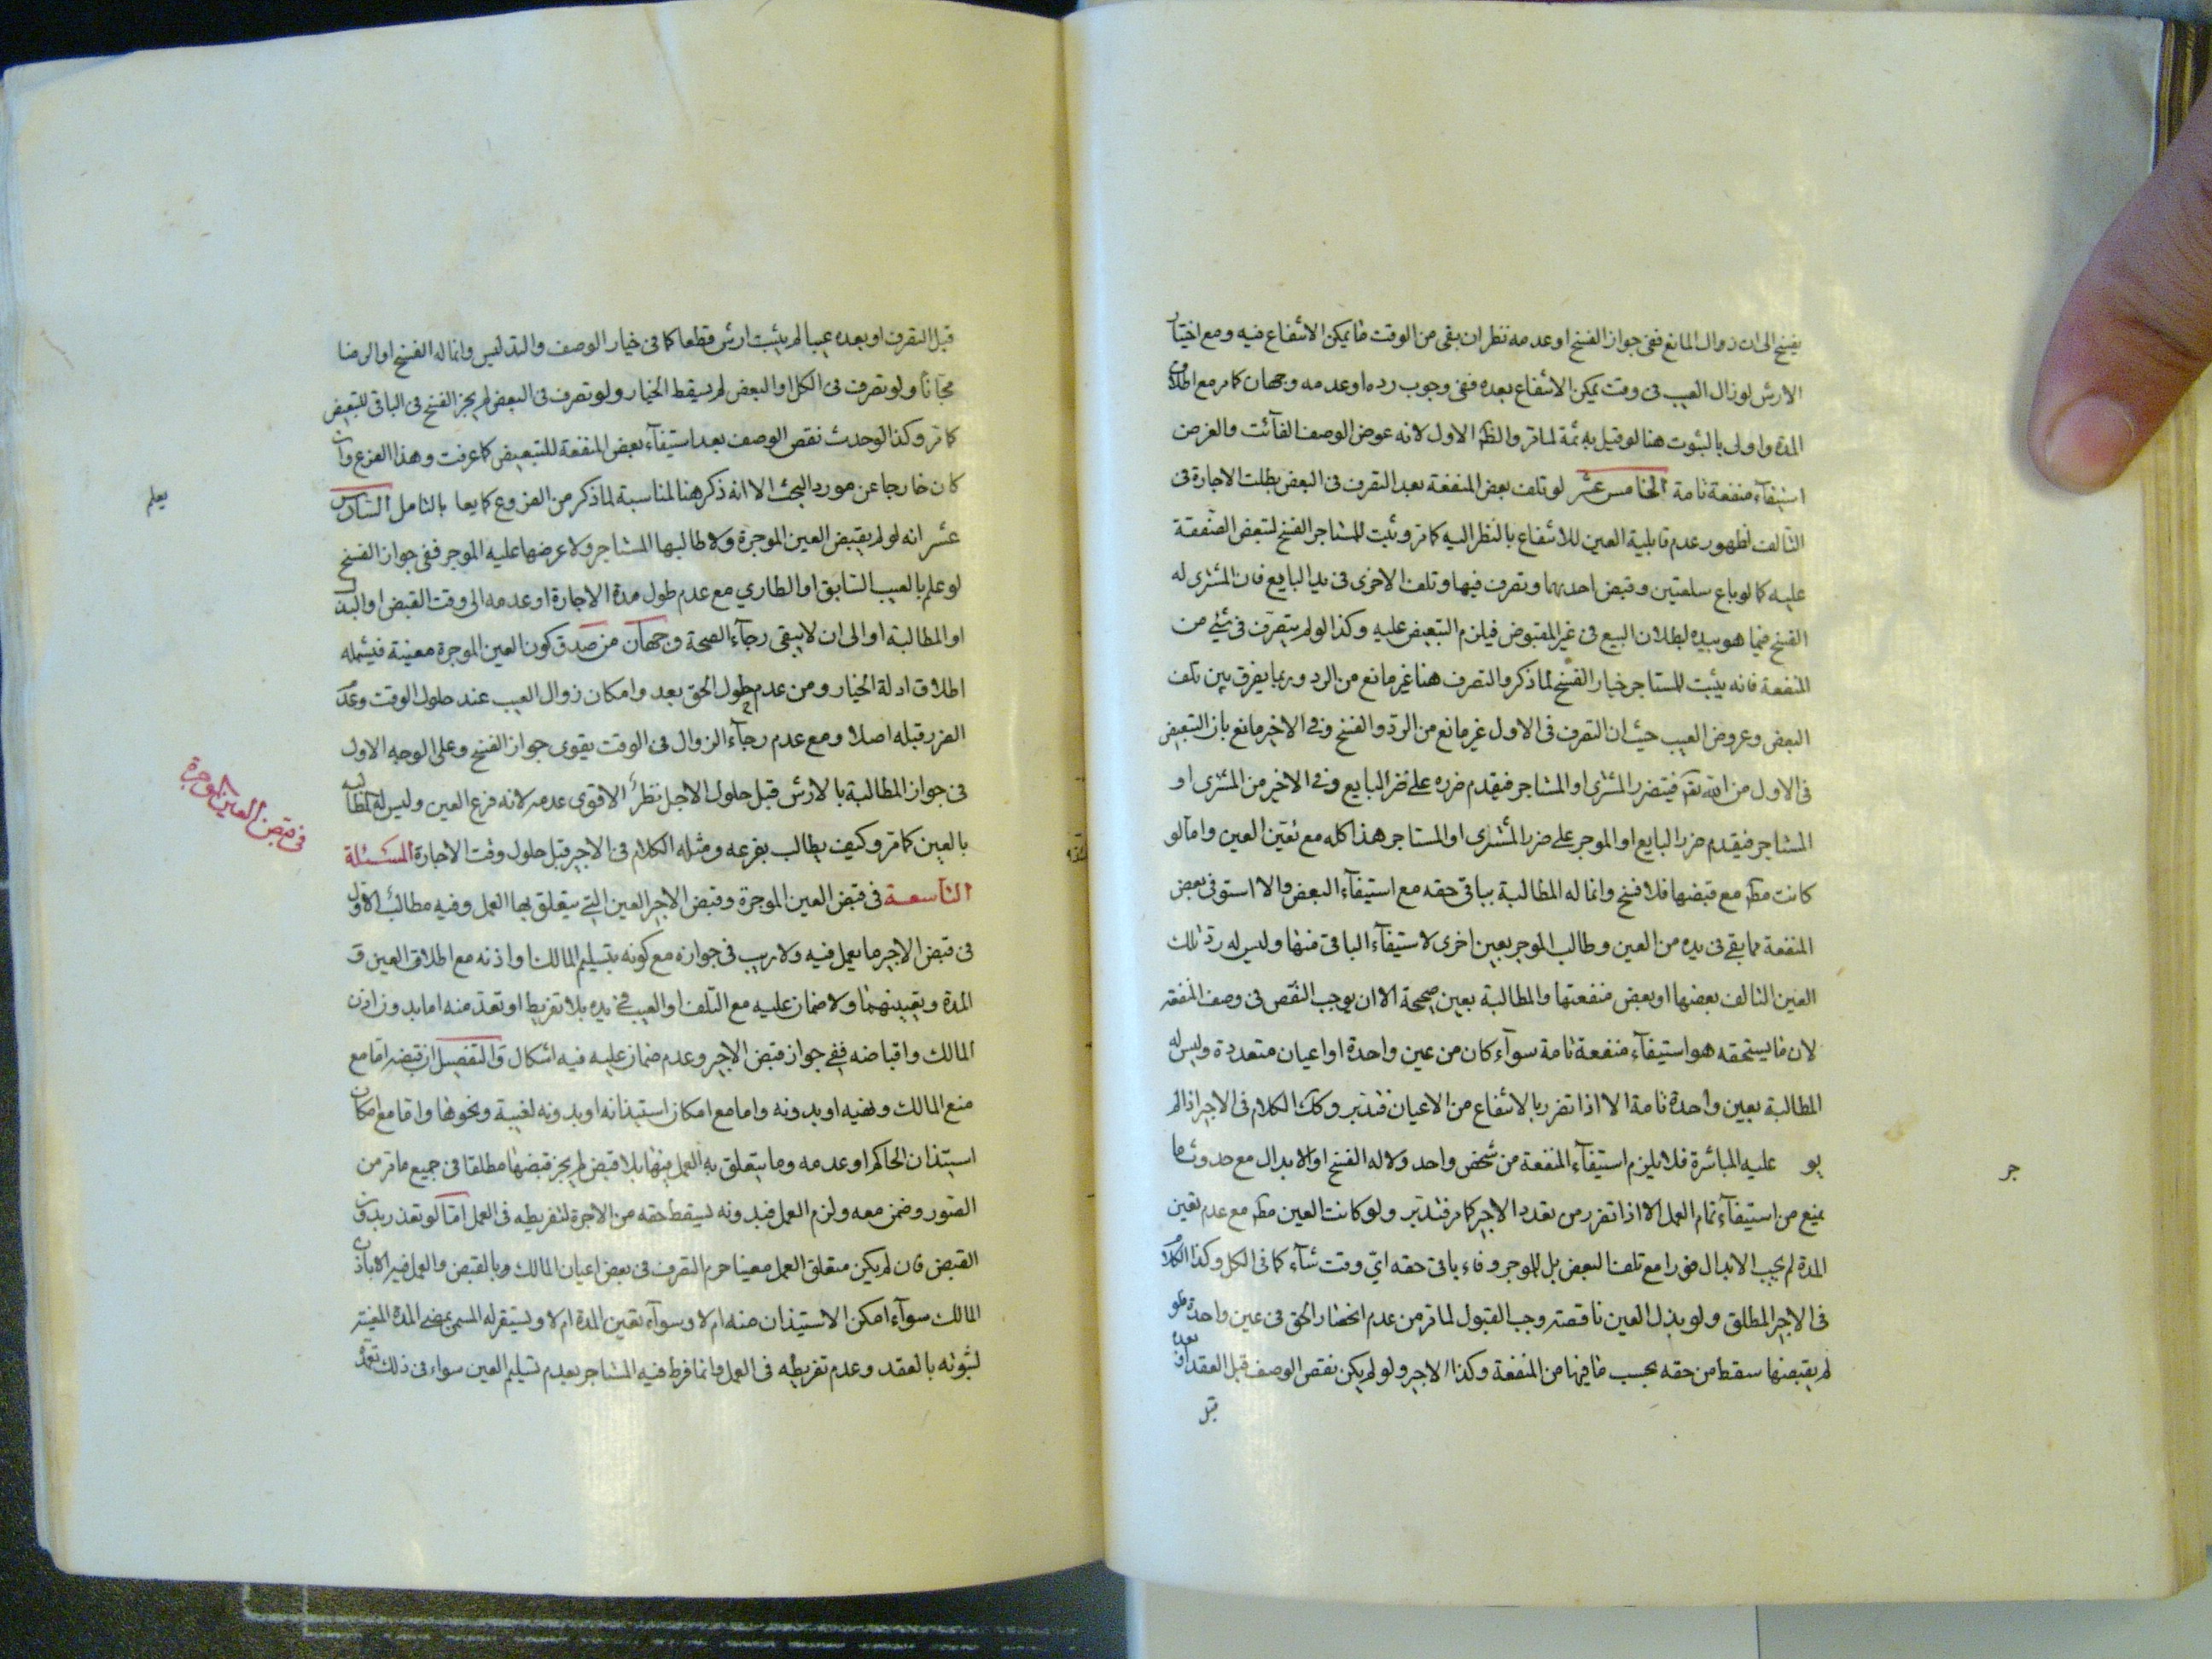 يفسخ الى ان زوال المانع ففى جواز الفسخ او عدمه نظر ان بقى من الوقت ما يمكن الانتفاع فيه ومع اختيار
الارش لو زال العيب فى وقت يمكن الانتفاع بعده ففى وجوب رده او عدمه وجهان كما مر مع اطلاق
المدة واولى بالثبوت هنا لو قيل به ثمة لما مر والظ الاول لانه عوض الوصف الفائت والغرض
استيفآء منفعة تامة الخامس عشر لو تلف بعض المنفعة بعد التصرف فى البعض بطلت الاجارة فى
التالف لظهور عدم قابلية العين للانتفاع بالنظر اليه كما مر وثبت للمستاجر الفسخ لتبعض الصفقة
عليه كما لو باع سلعتين وقبض احديهما وتصرف فيها وتلف الاخرى فى يد البايع فان المشترى له
الفسخ فيما هو بيده لبطلان البيع فى غير المقبوض فيلزم التبعيض عليه وكذا لو لم يتصرف فى شئ من
المنفعة فانه يثبت للمستاجر خيار الفسخ لما ذكر والتصرف هنا غير مانع من الرد وربما يفرق بين تلف
البعض وعروض العيب حيث ان التصرف فى الاول غير مانع من الرد والفسخ وفى الاخير مانع بان التبعيض
فى الاول من الله تع فيتضرر المشترى او المستاجر فيقدم ضرره على ضرر البايع وفى الاخير من المشترى او
المستاجر فيقدم ضرر البايع او الموجر على ضرر المشترى او المستاجر هذا كله مع تعين العين واما لو
كانت مط مع قبضها فلا فسخ وانما له المطالبة بباقى حقه مع استيفآء البعض والا استوفى بعض
المنفعة مما بقى فى يده من العين وطالب الموجر بعين اخرى لاستيفآء الباقى منها وليس له رد تلك
العين التالف بعضها او بعض منفعتها والمطالبة بعين صحيحة الا ان يوجب النقص فى وصف المنفعة
لان ما يستحقه هو استيفآء منفعة تامة سوآء كان من عين واحدة او اعيان متعددة وليس له
المطالبة بعين واحدة تامة الا اذا تضرر بالانتفاع من الاعيان فتدبر وكك الكلام فى الاجير اذا لم
يو عليه المباشرة فلا يلزم استيفآء المنفعة من شخص واحد ولا له الفسخ او الابدال مع حدوث ما
جر
يمنع من استيفآء تمام العمل الا اذا تضرر من تعدد الاجير كما مر فتدبر ولو كانت العين مط مع عدم تعين
المدة لم يجب الابدال فورا مع تلف البعض بل للموجر وفاء باقى حقه اى وقت شآء كما فى الكل وكذا الكلام
فى الاجير المطلق ولو بذل العين ناقصة وجب القبول لما مر من عدم انحصار الحق فى عين واحدة فلو
لم يقبضها سقط من حقه بحسب ما فيها من المنفعة وكذا الاجير ولو لم يكن نقص الوصف قبل العقد او بعده
قبل
قبل التصرف او بعده عيبا لم يثبت ارش قطعا كما فى خيار الوصف والتدليس وانما له الفسخ او الرضا
مجآنا ولو تصرف فى الكل او البعض لم يسقط الخيار ولو تصرف فى البعض لم يجز الفسخ فى الباقى للتبعيض
كما مر وكذا لو حدث نقص الوصف بعد استيفآء بعض المنفعة للتبعيض كما عرفت وهذا الفرع وان
كان خارجا عن مورد البحث الا انه ذكر هنا لمناسبة لما ذكر من الفروع كما يعا بالتامل السادس
يعلم
عشر انه لو لم يقبض العين الموجرة ولا طالبها المستاجر ولا عرضها عليه الموجر ففى جواز الفسخ
لو علم بالعيب السابق او الطارى مع عدم طول مدة الاجارة او عدمه الى وقت القبض او البذل
او المطالبة او الى ان لا يبقى رجآء الصحة وجهان من صدق كون العين الموجرة معيبة فيشمله
اطلاق ادلة الخيار ومن عدم حلول الحق بعد وامكان زوال العيب عند حلول الوقت وعدم
الضرر قبله اصلا ومع عدم رجآء الزوال فى الوقت يقوى جواز الفسخ وعلى الوجه الاول
فى جواز المطالبة بالارش قبل حلول الاجل نظر الاقوى عدمه لانه فرع العين وليس له المطالبه
بالعين كما مر وكيف يطالب بفرعه ومثله الكلام فى الاجير قبل حلول وقت الاجارة المسئلة
فى قبض العين الموجرة
التاسعة فى قبض العين الموجرة وقبض الاجير العين التى يتعلق بها العمل وفيه مطالب الاول
فى قبض الاجير ما يعمل فيه ولا ريب فى جوازه مع كونه بتسليم المالك او اذنه مع اطلاق العين و
المدة وتعيينهما ولا ضمان عليه مع التلف او العيب فى يده بلا تفريط او تعد منه اما بدون اذن
المالك واقباضه ففى جواز قبض الاجير وعدم ضمان عليه فيه اشكال والتفصيل ان قبضه اما مع
منع المالك ونهيه او بدونه واما مع امكان استيذانه او بدونه لغيبة ونحوها واما مع امكان
استيذان الحاكم او عدمه وما يتعلق به العمل منها بلا قبض لم يجز قبضها مطلقا فى جميع ما مر من
الصور وضمن معه ولزم العمل فبدونه يسقط حقه من الاجرة لتفريطه فى العمل اما لو تعذر بدون
القبض فان لم يكن متعلق العمل معينا حرم التصرف فى بعض اعيان المالك وبالقبض والعمل فيه الا باذن
المالك سوآء امكن الاستيذان منه ام لا وسوآء تعين المدة ام لا ويستقر له المسمى بمضى المدة المعينة
لثبوته بالعقد وعدم تفريطه فى العمل وانما فرط فيه المستاجر بعدم تسليم العين سواء فى ذلك تعمد